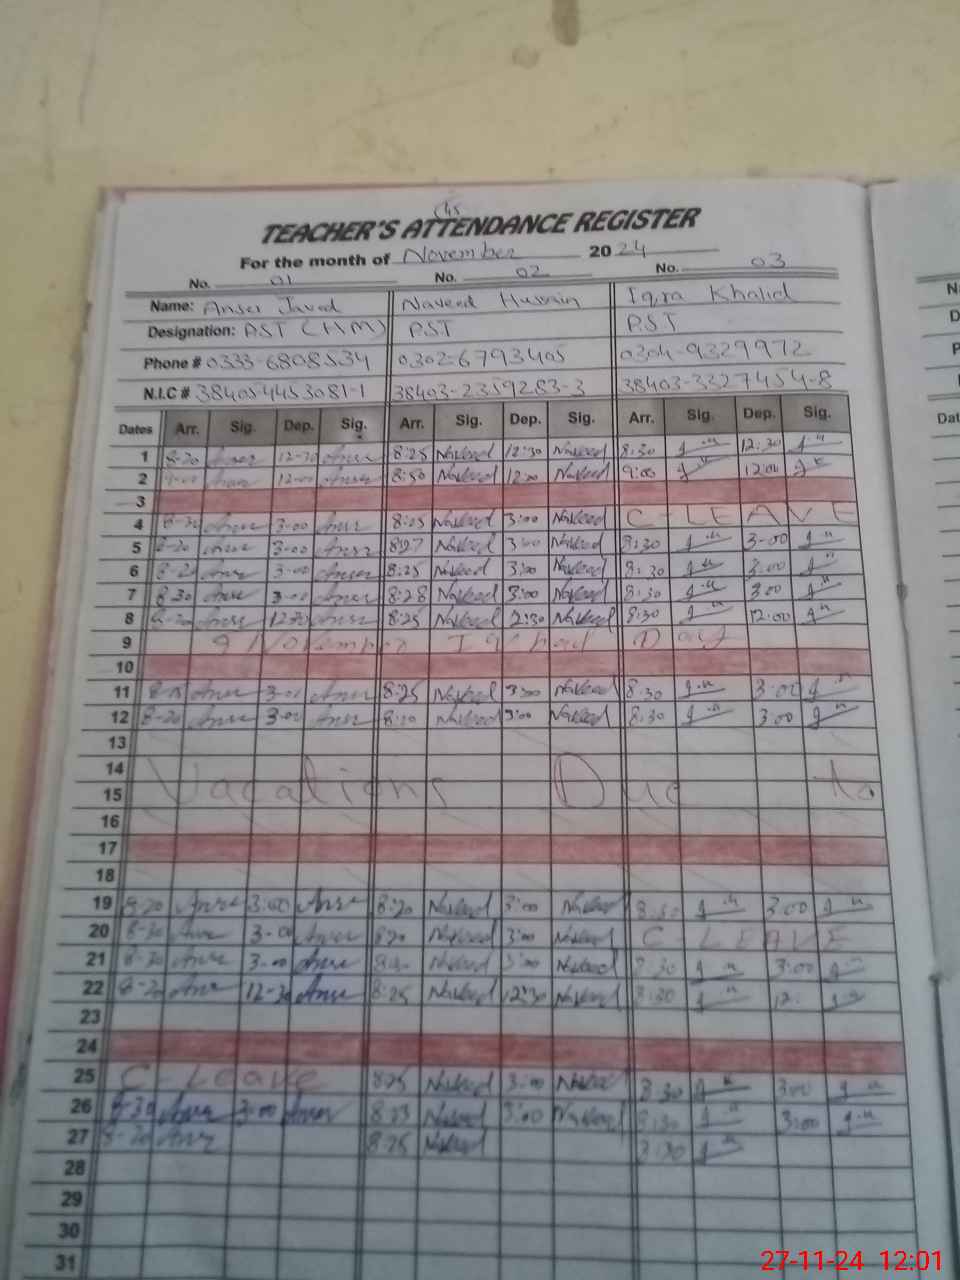 TEACHER'S ATTENDANCE REGISTER
For the month of November 2024
No. 01 No. 02 No. 03
Name: Anser Javed Naveed Hussain Iqra Khalid
Designation: PST (HM) PST PST
Phone # 0333-6808534 0302-6793405 0304-9329972
N.I.C # 38405-4453081-1 38403-2359283-3 38403-3327454-8
Dates Arr. Sig. Dep. Sig. Arr. Sig. Dep. Sig. Arr. Sig. Dep. Sig.
1 8-30 Anser 12-30 Anser 8:25 Naveed 12:30 Naveed 8:30 12:30
2 9-00 Anser 12-00 Anser 8:50 Naveed 12:00 Naveed 9:00 12:00
3
4 8-30 Anser 3-00 Anser 8:25 Naveed 3:00 Naveed C-LEAVE
5 Anser 3-00 Anser 8:27 Naveed 3:00 Naveed 8:30 3-00
6 Anser 3-00 Anser 8:25 Naveed 3:00 Naveed 8:30 3:00
7 8-30 Anser 3-00 Anser 8:28 Naveed 3:00 Naveed 8:30 3:00
8 Anser 12-30 Anser 8:25 Naveed Naveed 8:30 12:00
9 9 November Iqbal Day
10
11 Anser 3-00 Anser 8:25 Naveed 3:00 Naveed 8:30 3:00
12 8-20 Anser 3-00 Anser 8:20 Naveed 3:00 Naveed 8:30 3:00
13
14
15 Vacations Due to
16
17
18
19 8-20 Anser 3-00 Anser 8:20 Naveed 3:00 Naveed 8:30 3:00
20 8-30 Anser 3-00 Anser Naveed 3:00 Naveed C-LEAVE
21 8-30 Anser 3-00 Anser Naveed 3:00 Naveed 8:30 3:00
22 8-20 Anser 12-30 Anser 8:25 Naveed 12:30 Naveed 8:30
23
24
25 C-Leave 8:25 Naveed 3:00 Naveed 8:30 3:00
26 8-30 Anser 3-00 Anser 8:23 Naveed 3:00 Naveed 8:30 3:00
27 Anser 8:25 Naveed 8:30
28
29
30
31
27-11-24 12:01